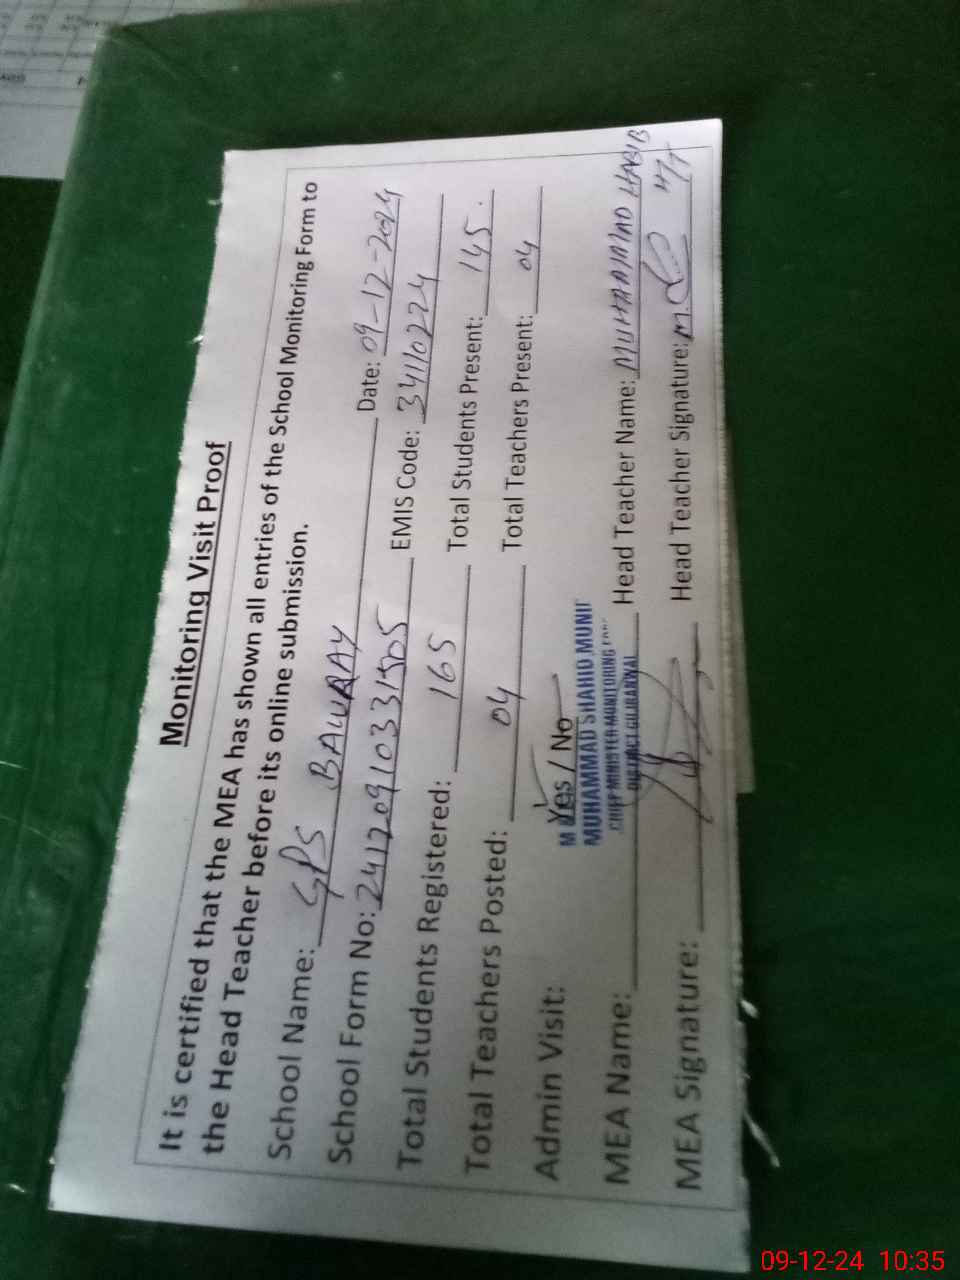 Monitoring Visit Proof
It is certified that the MEA has shown all entries of the School Monitoring Form to
the Head Teacher before its online submission.
School Name: GPS BALURAY Date: 09-12-2024
School Form No: 24120910331505 EMIS Code: 34110224
Total Students Registered: 165 Total Students Present: 145.
Total Teachers Posted: 04 Total Teachers Present: 04
Admin Visit: Yes / No
MUHAMMAD SHAHID MUNI
CHIEF MINISTER MONITORING
DISTRICT GUJRANWAL
MEA Name: Head Teacher Name: MUHAMMAD HABIB
MEA Signature: Head Teacher Signature: M. H/T
09-12-24 10:35